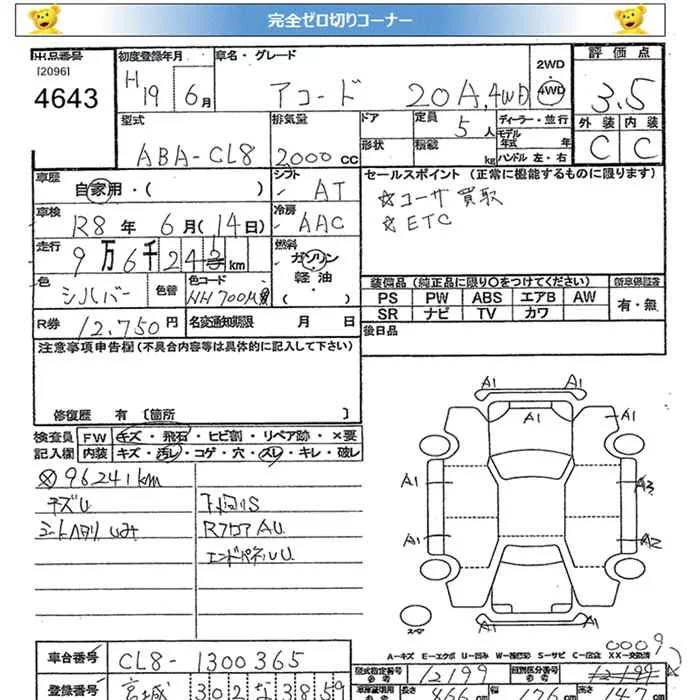 完全ゼロ切りコーナー
出品番号
[2096]
4643
初度登録年月
H19 6月
車名・グレード
アコード 20A,4WD
2WD
4WD
評価点
3.5
外装 内装
C C
型式
ABA-CL8
排気量
2000cc
ドア
形状
定員
5人
積載
kg
ディーラー・並行
モデル
年式 年
ハンドル 左・右
車歴
自家用・( )
シフト
AT
車検
R8年 6月(14日)
冷房
AAC
セールスポイント (正常に機能するものに限ります)
☆コーサ買取
☆ETC
走行
9万6千243km
燃料
ガソリン
軽油
( )
色
シルバー
色替
色コード
NH700M
装備品(純正品に限り○をつけてください)
新車保証書
PS PW ABS エアB AW
SR ナビ TV カワ
有・無
R券
12,750円
名変通知期限 月 日
後日品
注意事項申告欄(不具合内容等は具体的に記入して下さい)
修復歴 有 〔箇所 〕
検査員
記入欄
FW キズ・飛石・ヒビ割・リペア跡・×要
内装 キズ・汚レ・コゲ・穴・スレ・キレ・破レ
⊗96241km
キズU
シートヘタリ しみ
下回りS
RフロアAU
エンドパネルU
A1 A1
A1 A1
A1 A3
A1 A2
A1 A1
スペア
A-キズ E-エクボ U-凹み W-補修跡 S-サビ C-腐食 XX-交換済
車台番号
CL8-1300365
型式指定番号
12199
類別区分番号
0009
12199
登録番号
宮城 302 な 3859
長さ
466cm
幅
176cm
高さ
147cm